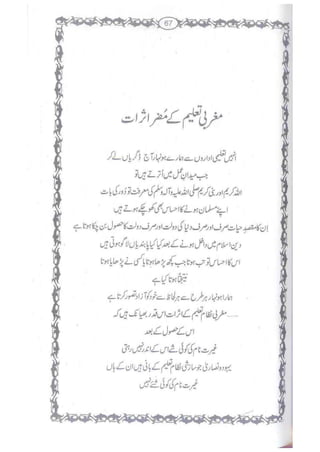 67
مغربی تعلیم کے مُضر اثرات
انہیں تعلیمی اداروں سے ہمارے ہونہار آج ڈگریاں لے کر
جب میدانِ عمل میں اُترتے ہیں تو
اللہ کریم اور نبی کریم صلی اللہ علیہ وآلہ وسلم کی معرفت تو دُور کی بات
اپنے مسلمان ہونے کا احساس بھی کھو چکے ہوتے ہیں
اِن کا مقصدِ حیات صرف اور صرف دنیا کی دولت اور دولت کا حصول بن چکا ہوتا ہے
دین اسلام میں داخل ہونے کے بعد کیا کیا پابندیاں لاگو ہوتی ہیں
اس کا احساس تو تب ہوتا جب کچھ پڑھا ہوتا یا کسی نے پڑھایا ہوتا
نتیجتاً ہوتا کیا ہے
ہمارا ہونہار ہر طرح سے ہر لحاظ سے خود کو آزاد تصور کرتا ہے
مغربی نظام تعلیم کے اثرات اس قدر بھیانک ہیں کہ
اس کے حصول کے بعد
غیرت نام کی کوئی شے اس کے اندر نہیں رہتی
یہود و نصاریٰ جو سازشی نظام تعلیم کے بانی ہیں ان کے ہاں
غیرت نام کی کوئی شے نہیں